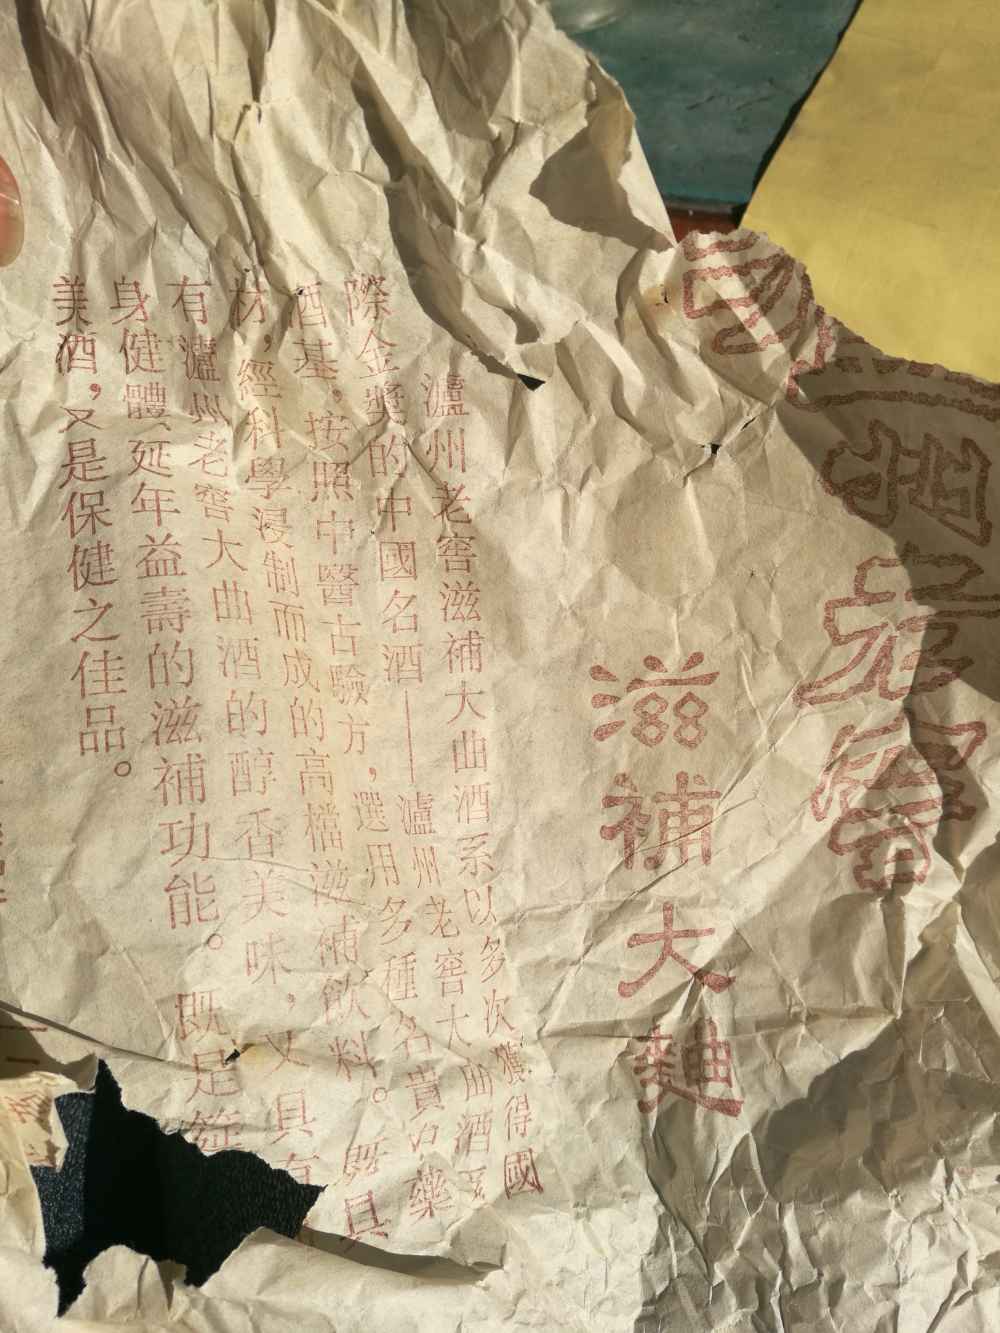 老窖
滋補大麯
瀘州老窖滋補大曲酒系以多次獲得國
際金獎的中國名酒——瀘州老窖大曲酒
酒基，按照中醫古驗方，選用多種名貴藥
材，經科學浸制而成的高檔滋補飲料。既具
有瀘州老窖大曲酒的醇香美味，又具有
身健體、延年益壽的滋補功能。既是筵
美酒，又是保健之佳品。